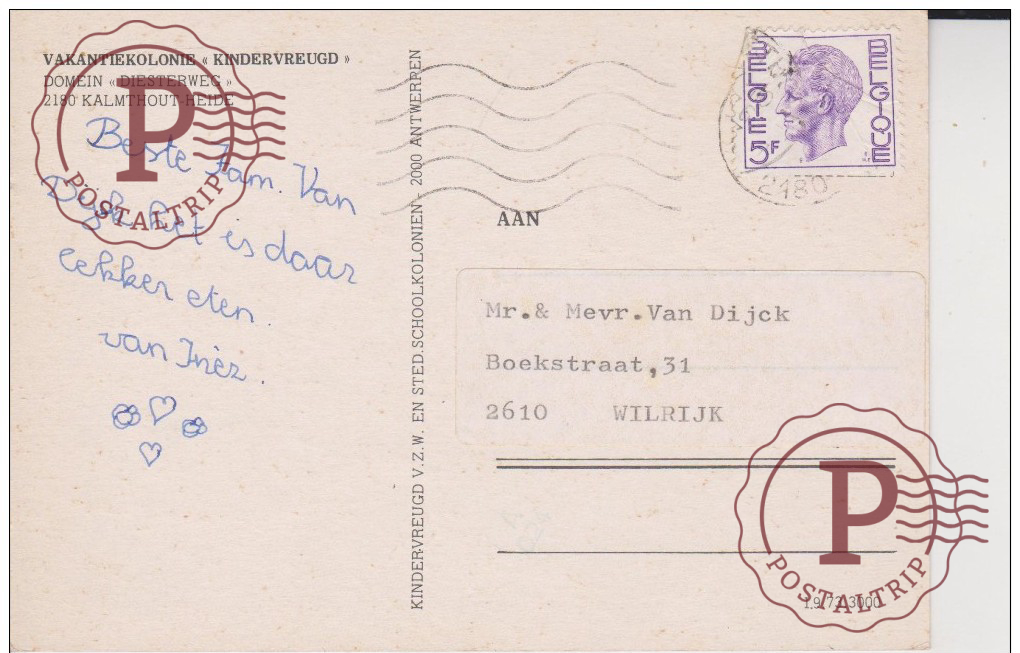 VAKANTIEKOLONIE « KINDERVREUGD »
DOMEIN « DIESTERWEG »
2180 KALMTHOUT-HEIDE
Beste Fam. Van
Dijck het is daar
lekker eten.
van Inèz.
KINDERVREUGD V.Z.W. EN STED. SCHOOLKOLONIEN - 2000 ANTWERPEN
BELGIE 5F BELGIQUE
2180
AAN
Mr.& Mevr.Van Dijck
Boekstraat,31
2610 WILRIJK
1.9/73/3000
P
POSTALTRIP
P
POSTALTRIP